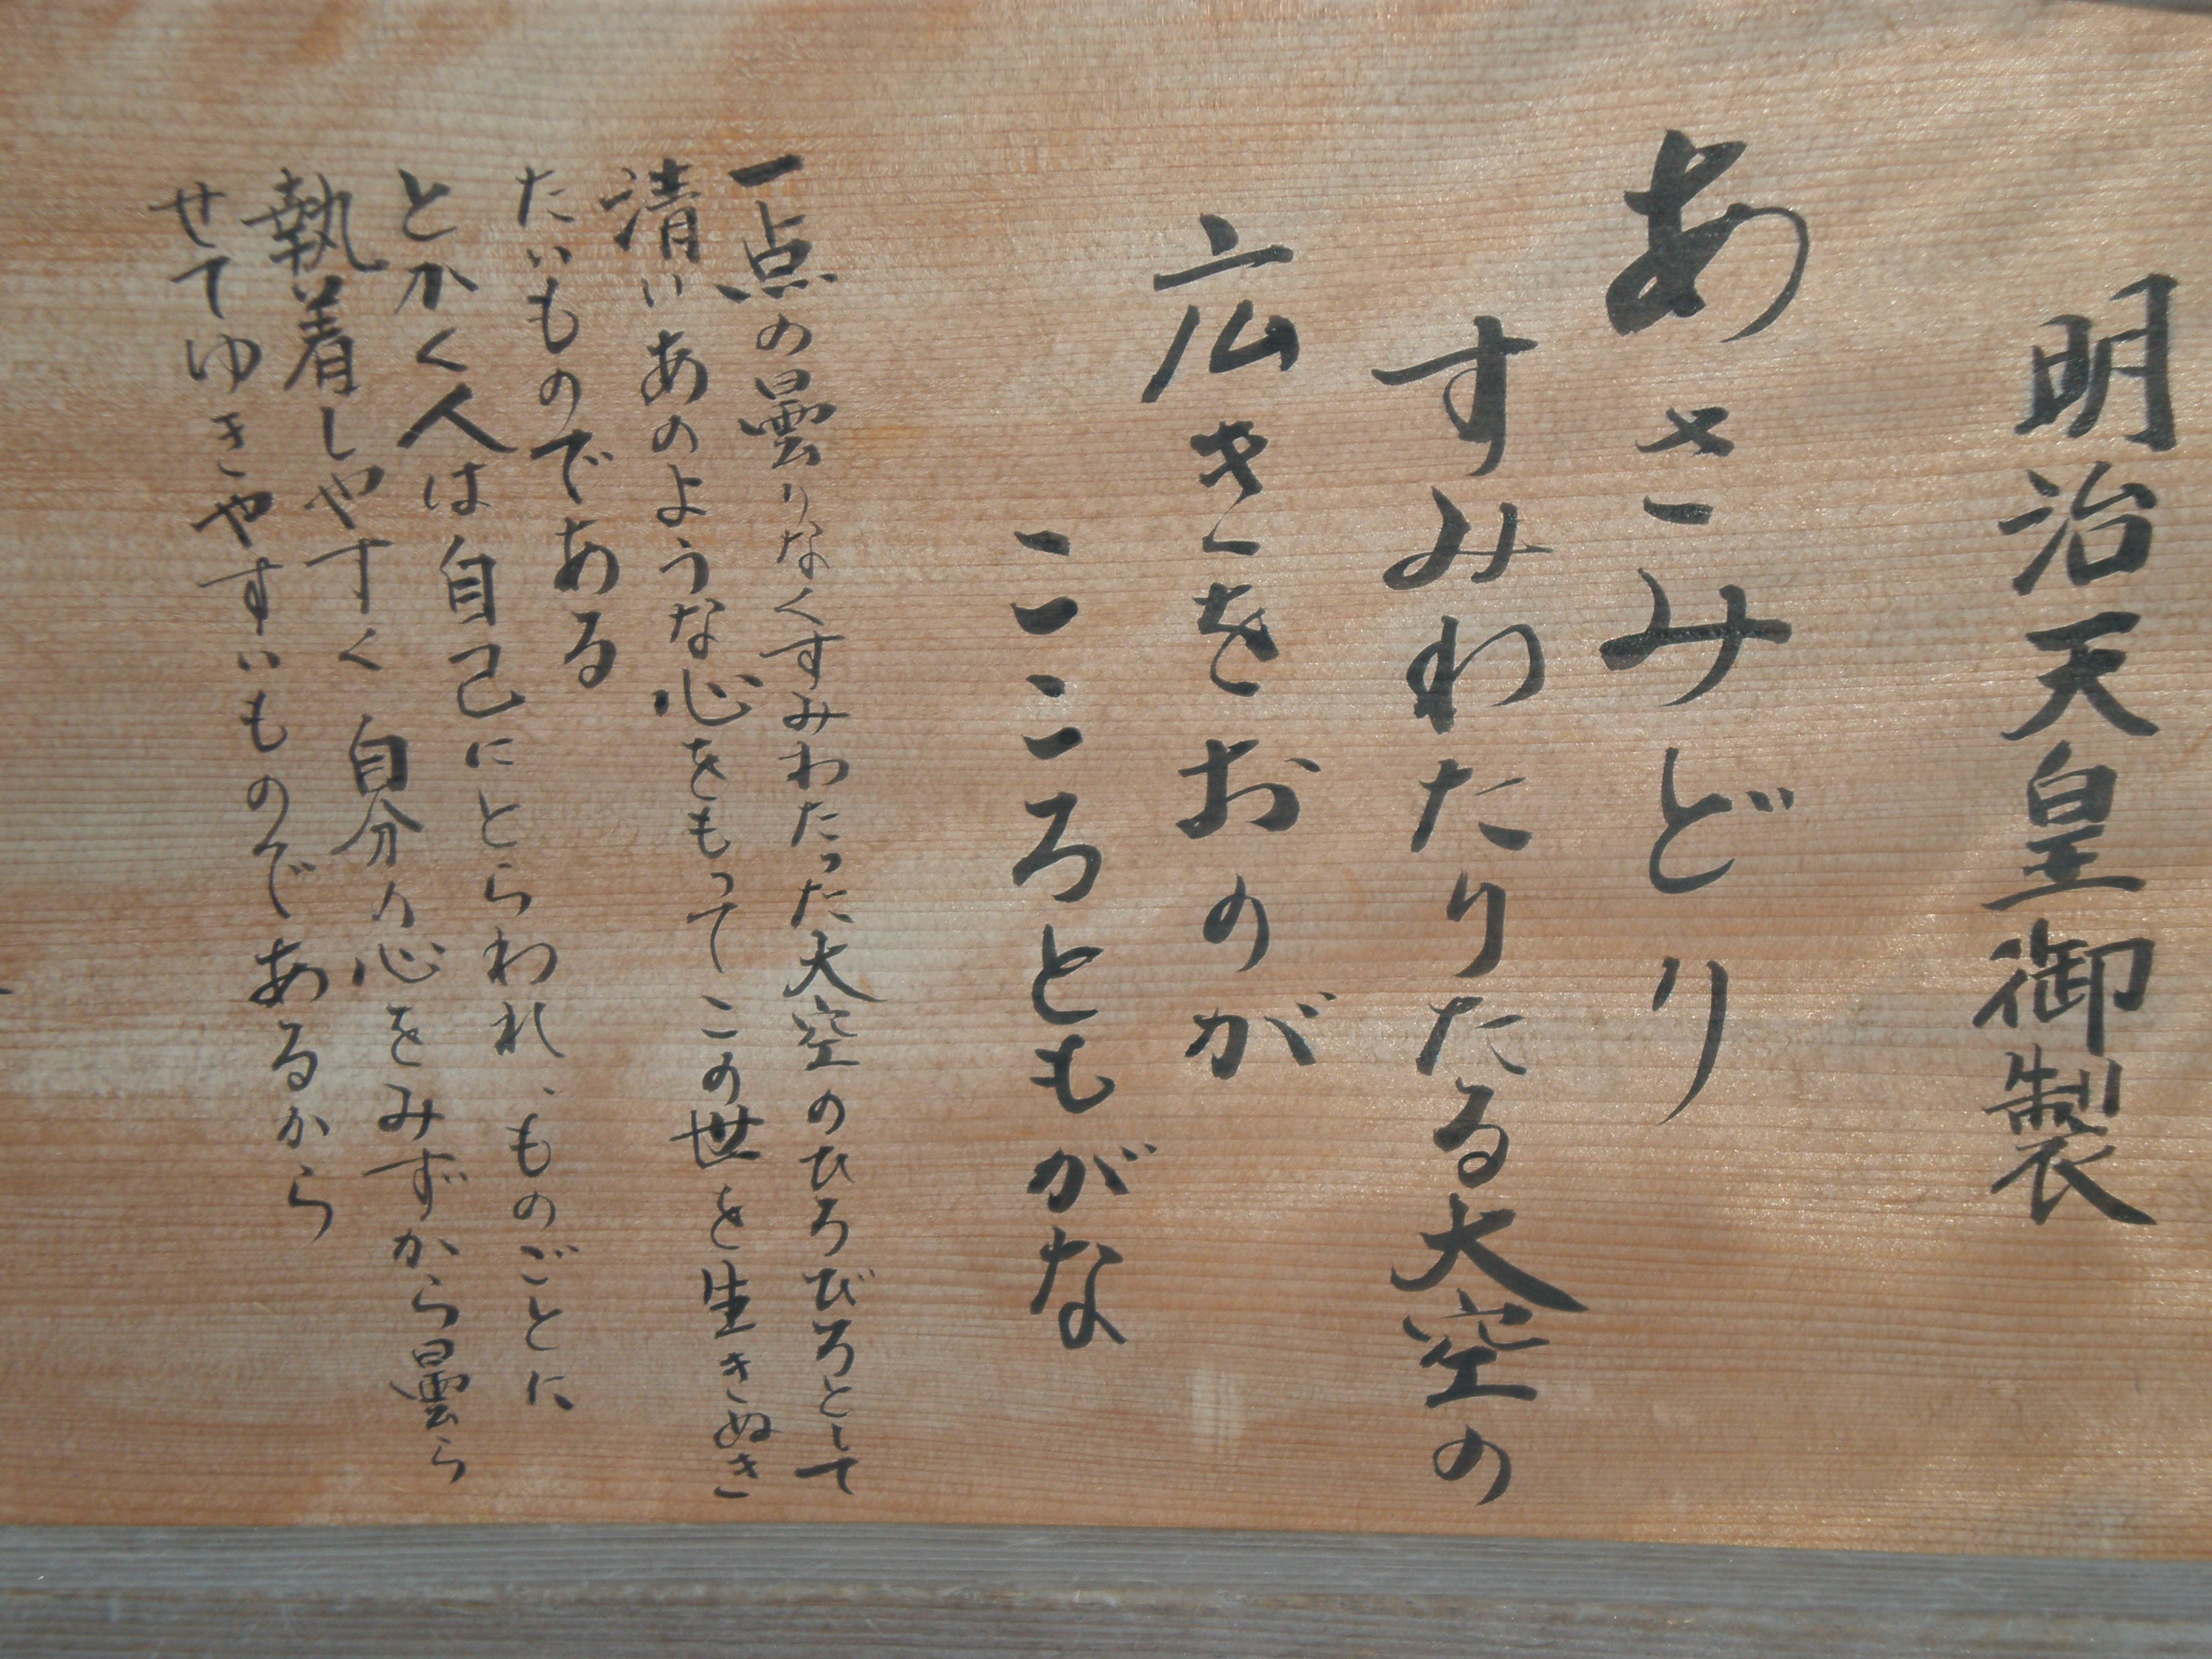 明治天皇御製
あさみどり
すみわたりたる大空の
広きをおのが
こころともがな
一点の曇りなくすみわたった大空のひろびろとして
清いあのような心をもってこの世を生きぬき
たいものである
とかく人は自己にとらわれ、ものごとに
執着しやすく自分の心をみずから曇ら
せてゆきやすいものであるから